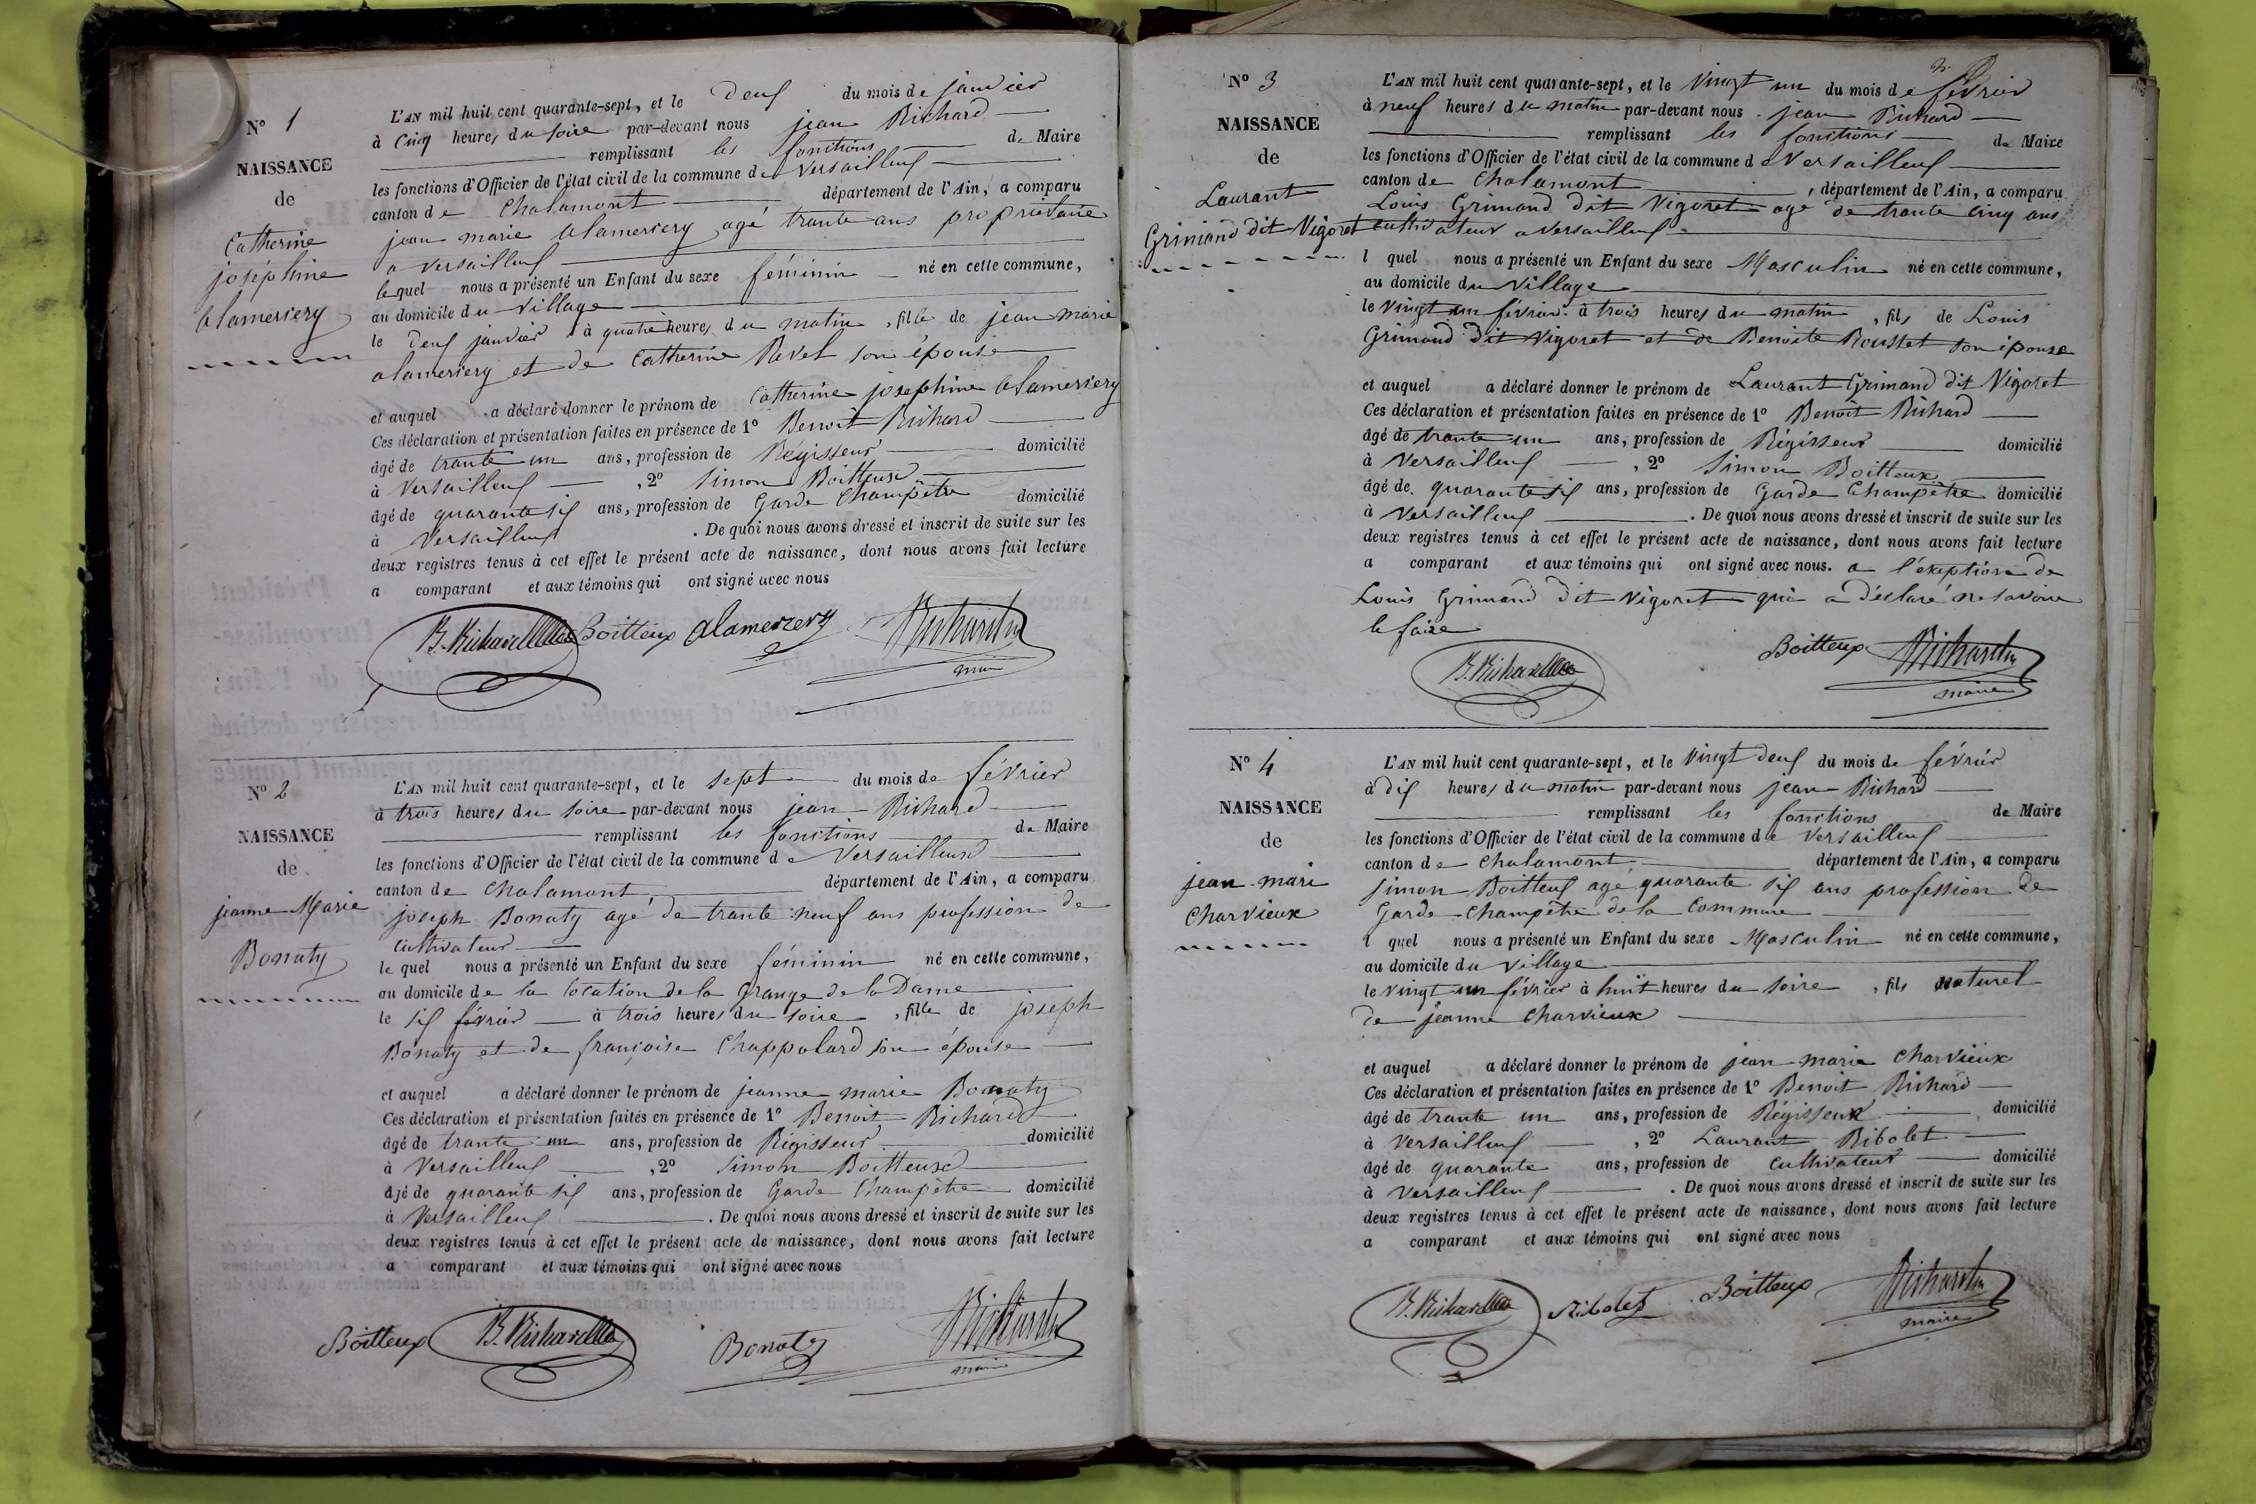 N° 1
NAISSANCE
de
Catherine
joséphine
alamersery
L'AN mil huit cent quarante-sept, et le deux du mois de janvier
à Cinq heures du soire par-devant nous jean Richard
remplissant les fonctions de Maire
les fonctions d'Officier de l'état civil de la commune de Versailleux
canton de Chalamont département de l'Ain, a comparu
jean marie alamersery agé trante ans propriétaire
a versailleux
lequel nous a présenté un Enfant du sexe féminin né en cette commune,
au domicile du village
le deux janvier à quatre heures du matin, fille de jean marie
alamersery et de Catherine Ravet son épouse
et auquel a déclaré donner le prénom de Catherine josephine alamersery
Ces déclaration et présentation faites en présence de 1° Benoit Richard
âgé de trante un ans, profession de Régisseur domicilié
à Versailleux , 2° Simon Boitteux
âgé de quarante six ans, profession de Garde Champêtre domicilié
à Versailleux . De quoi nous avons dressé et inscrit de suite sur les
deux registres tenus à cet effet le présent acte de naissance, dont nous avons fait lecture
a comparant et aux témoins qui ont signé avec nous
B. Richard Boitteux alamercery Richard
maire
N° 2
NAISSANCE
de
jeanne Marie
Bonaty
L'AN mil huit cent quarante-sept, et le sept du mois de février
à trois heures du soire par-devant nous jean Richard
remplissant les fonctions de Maire
les fonctions d'Officier de l'état civil de la commune de Versailleux
canton de Chalamont département de l'Ain, a comparu
joseph Bonaty agé de trante neuf ans profession de
cultivateur
le quel nous a présenté un Enfant du sexe féminin né en cette commune,
au domicile de la location de la Grange de la Dame
le six février à trois heures du soire, fille de joseph
Bonaty et de françoise Chappolard son épouse
et auquel a déclaré donner le prénom de jeanne marie Bonaty
Ces déclaration et présentation faites en présence de 1° Benoit Richard
âgé de trante un ans, profession de Régisseur domicilié
à Versailleux , 2° Simon Boitteux
âgé de quarante six ans, profession de Garde Champêtre domicilié
à Versailleux . De quoi nous avons dressé et inscrit de suite sur les
deux registres tenus à cet effet le présent acte de naissance, dont nous avons fait lecture
a comparant et aux témoins qui ont signé avec nous
Boitteux B. Richard Bonaty Richard
maire
N° 3
NAISSANCE
de
Laurant
Grimand dit Vigoret
L'AN mil huit cent quarante-sept, et le vingt un du mois de février
à neuf heures du matin par-devant nous jean Richard
remplissant les fonctions de Maire
les fonctions d'Officier de l'état civil de la commune de Versailleux
canton de Chalamont , département de l'Ain, a comparu
Louis Grimand dit Vigoret agé de trante cinq ans
cultivateur a versailleux
l quel nous a présenté un Enfant du sexe Masculin né en cette commune,
au domicile du village
le vingt un février à trois heures du matin, fils de Louis
Grimand dit Vigoret et de Benoite Roustet son épouse
et auquel a déclaré donner le prénom de Laurant Grimand dit Vigoret
Ces déclaration et présentation faites en présence de 1° Benoit Richard
âgé de trante un ans, profession de Régisseur domicilié
à Versailleux , 2° Simon Boitteux
âgé de quarante six ans, profession de Garde Champêtre domicilié
à Versailleux . De quoi nous avons dressé et inscrit de suite sur les
deux registres tenus à cet effet le présent acte de naissance, dont nous avons fait lecture
a comparant et aux témoins qui ont signé avec nous. a l'exeption de
Louis Grimand dit Vigoret qui a déclaré ne savoire
le faire
B. Richard Boitteux Richard
maire
N° 4
NAISSANCE
de
jean mari
Charvieux
L'AN mil huit cent quarante-sept, et le vingt deux du mois de février
à dix heures du matin par-devant nous jean Richard
remplissant les fonctions de Maire
les fonctions d'Officier de l'état civil de la commune de Versailleux
canton de Chalamont département de l'Ain, a comparu
Simon Boitteux agé quarante six ans profession de
Garde Champêtre de la Commune
l quel nous a présenté un Enfant du sexe Masculin né en cette commune,
au domicile du village
le vingt un février à huit heures du soire, fils naturel
de jeanne Charvieux
et auquel a déclaré donner le prénom de jean marie Charvieux
Ces déclaration et présentation faites en présence de 1° Benoit Richard
âgé de trante un ans, profession de Régisseur domicilié
à Versailleux , 2° Laurant Ribolet
âgé de quarante ans, profession de cultivateur domicilié
à Versailleux . De quoi nous avons dressé et inscrit de suite sur les
deux registres tenus à cet effet le présent acte de naissance, dont nous avons fait lecture
a comparant et aux témoins qui ont signé avec nous
B. Richard Ribolet Boitteux Richard
maire